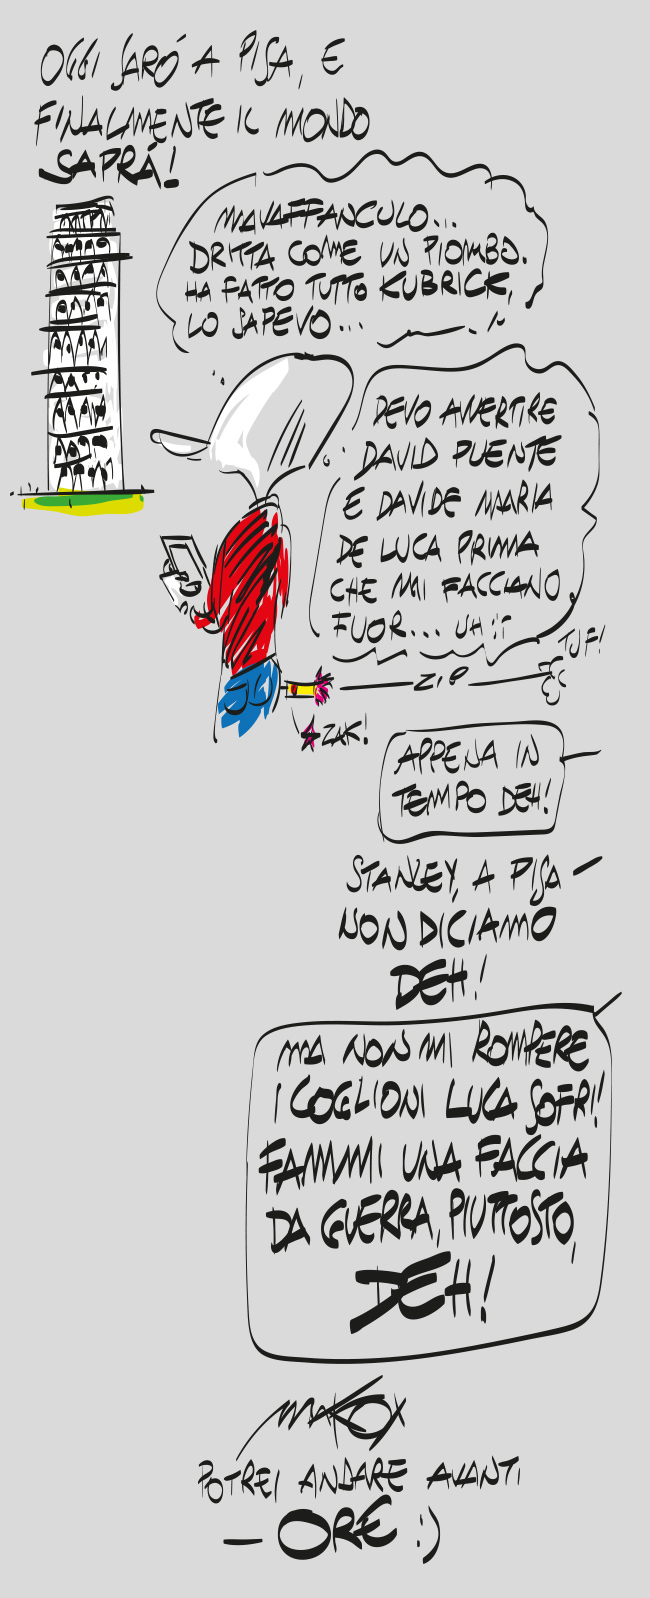 OGGI SARÓ A PISA, E
FINALMENTE IL MONDO
SAPRÁ!
MAVAFFANCULO...
DRITTA COME UN PIOMBO.
HA FATTO TUTTO KUBRICK,
LO SAPEVO...
DEVO AVVERTIRE
DAVID PUENTE
E DAVIDE MARIA
DE LUCA PRIMA
CHE MI FACCIANO
FUOR... UH!?
TUF!
ZIP
ZAK!
APPENA IN
TEMPO DEH!
STANLEY, A PISA
NON DICIAMO
DEH!
MA NON MI ROMPERE
I COGLIONI LUCA SOFRI!
FAMMMI UNA FACCIA
DA GUERRA, PIUTTOSTO,
DEH!
MAKOX
POTREI ANDARE AVANTI
– ORE :)